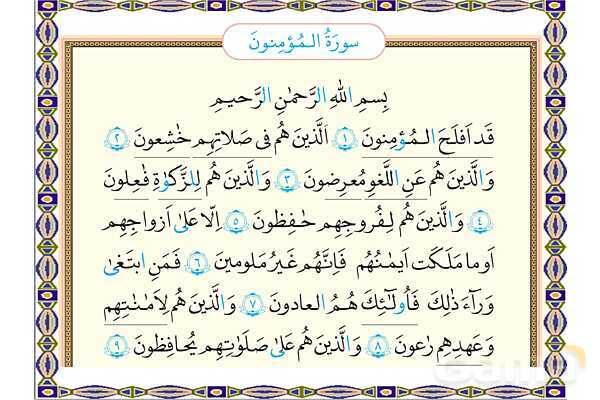 سورَةُ الـمُؤمِنونَ
بِسمِ اللّٰهِ الرَّحمٰنِ الرَّحيمِ
قَد اَفلَحَ الـمُؤمِنونَ ﴿١﴾ اَلَّذينَ هُم فی صَلاتِهِم خٰشِعونَ ﴿٢﴾
وَ الَّذينَ هُم عَنِ اللَّغوِ مُعرِضونَ ﴿٣﴾ وَ الَّذينَ هُم لِلزَّكوٰةِ فٰعِلونَ
﴿٤﴾ وَ الَّذينَ هُم لِفُروجِهِم حٰفِظونَ ﴿٥﴾ اِلّا عَلیٰ اَزواجِهِم
اَو ما مَلَكَت اَيمٰنُهُم فَاِنَّهُم غَيرُ مَلومينَ ﴿٦﴾ فَمَنِ ابتَغیٰ
وَرآءَ ذٰلِكَ فَاُولٰـئِكَ هُـمُ العادونَ ﴿٧﴾ وَ الَّذينَ هُم لِاَمٰنٰتِهِم
وَ عَهدِهِم رٰعونَ ﴿٨﴾ وَ الَّذينَ هُم عَلیٰ صَلَوٰتِهِم يُحافِظونَ ﴿٩﴾
Gama